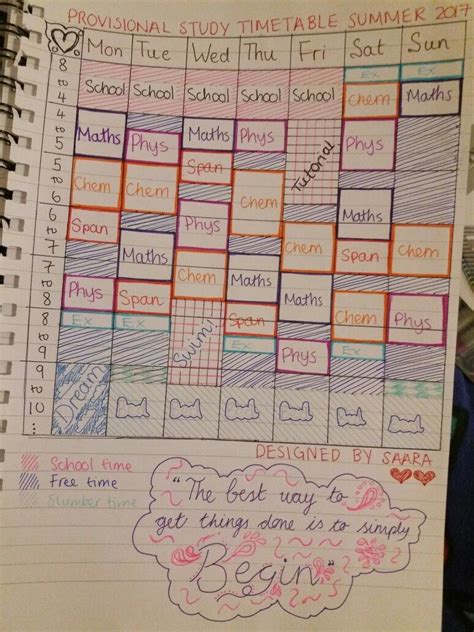 PROVISIONAL STUDY TIMETABLE SUMMER 2017
Mon Tue Wed Thu Fri Sat Sun
8 Ex Ex
to School School School School School Chem Maths
4
4 Maths Phys Maths Phys Tutorial Phys
to
5
5 Chem Chem Span Chem Maths
to
6
6 Span Phys Chem Span Chem
to Maths
7
7 Chem Maths Maths
to Phys Span Chem Phys
8
8 Ex Ex Swim! Span
to Ex Phys Ex
9
9 Dream
to
10
...
DESIGNED BY SAARA
School time
Free time
Slumber time
"The best way to
get things done is to simply
Begin"